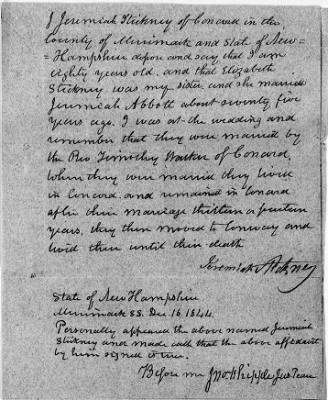 I Jeremiah Stickney of Concord in the
County of Merrimack and State of New=
=Hampshire depose and say that I am
eighty years old, and that Elizabeth
Stickney was my sister and she married
Jeremiah Abbott about seventy five
years ago. I was at the wedding and
remember that they were married by
the Rev Timothy Walker of Concord,
when they were married they lived
in Concord and remained in Concord
after their marriage thirteen or fourteen
years, they then moved to Conway and
lived there until their death
Jeremiah Stickney
State of New Hampshire
Merrimack SS. Dec 16 1844.
Personally appeared the above named Jeremiah
Stickney and made oath that the above affidavit
by him signed is true.
Before me Jno Whipple Jus Peace